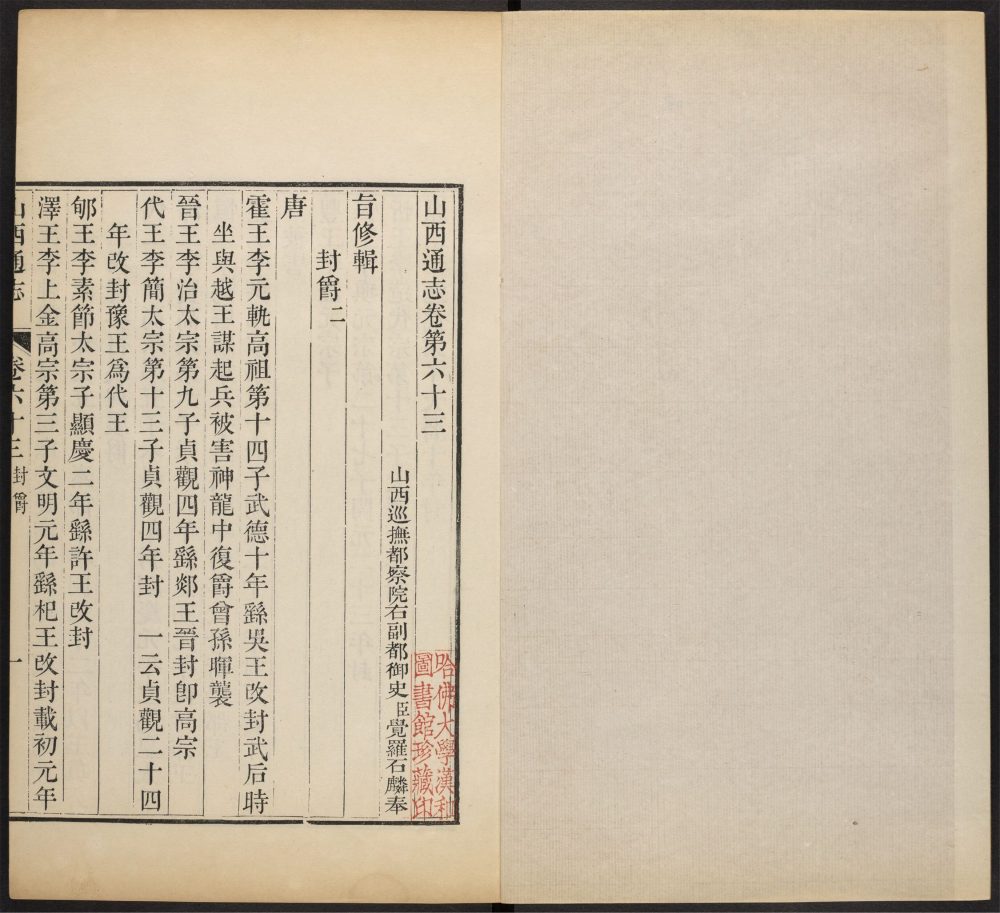 山西通志卷第六十三
山西巡撫都察院右副都御史臣覺羅石麟奉
旨修輯
封爵二
唐
霍王李元軌高祖第十四子武德十年繇吳王改封武后時
坐與越王謀起兵被害神龍中復爵曾孫暉襲
晉王李治太宗第九子貞觀四年繇郯王晉封卽高宗
代王李簡太宗第十三子貞觀四年封　一云貞觀二十四
年改封豫王爲代王
郇王李素節太宗子顯慶二年繇許王改封
澤王李上金高宗第三子文明元年繇杞王改封載初元年
山西通志　卷六十三封爵　一
哈佛大學漢和
圖書館珍藏印